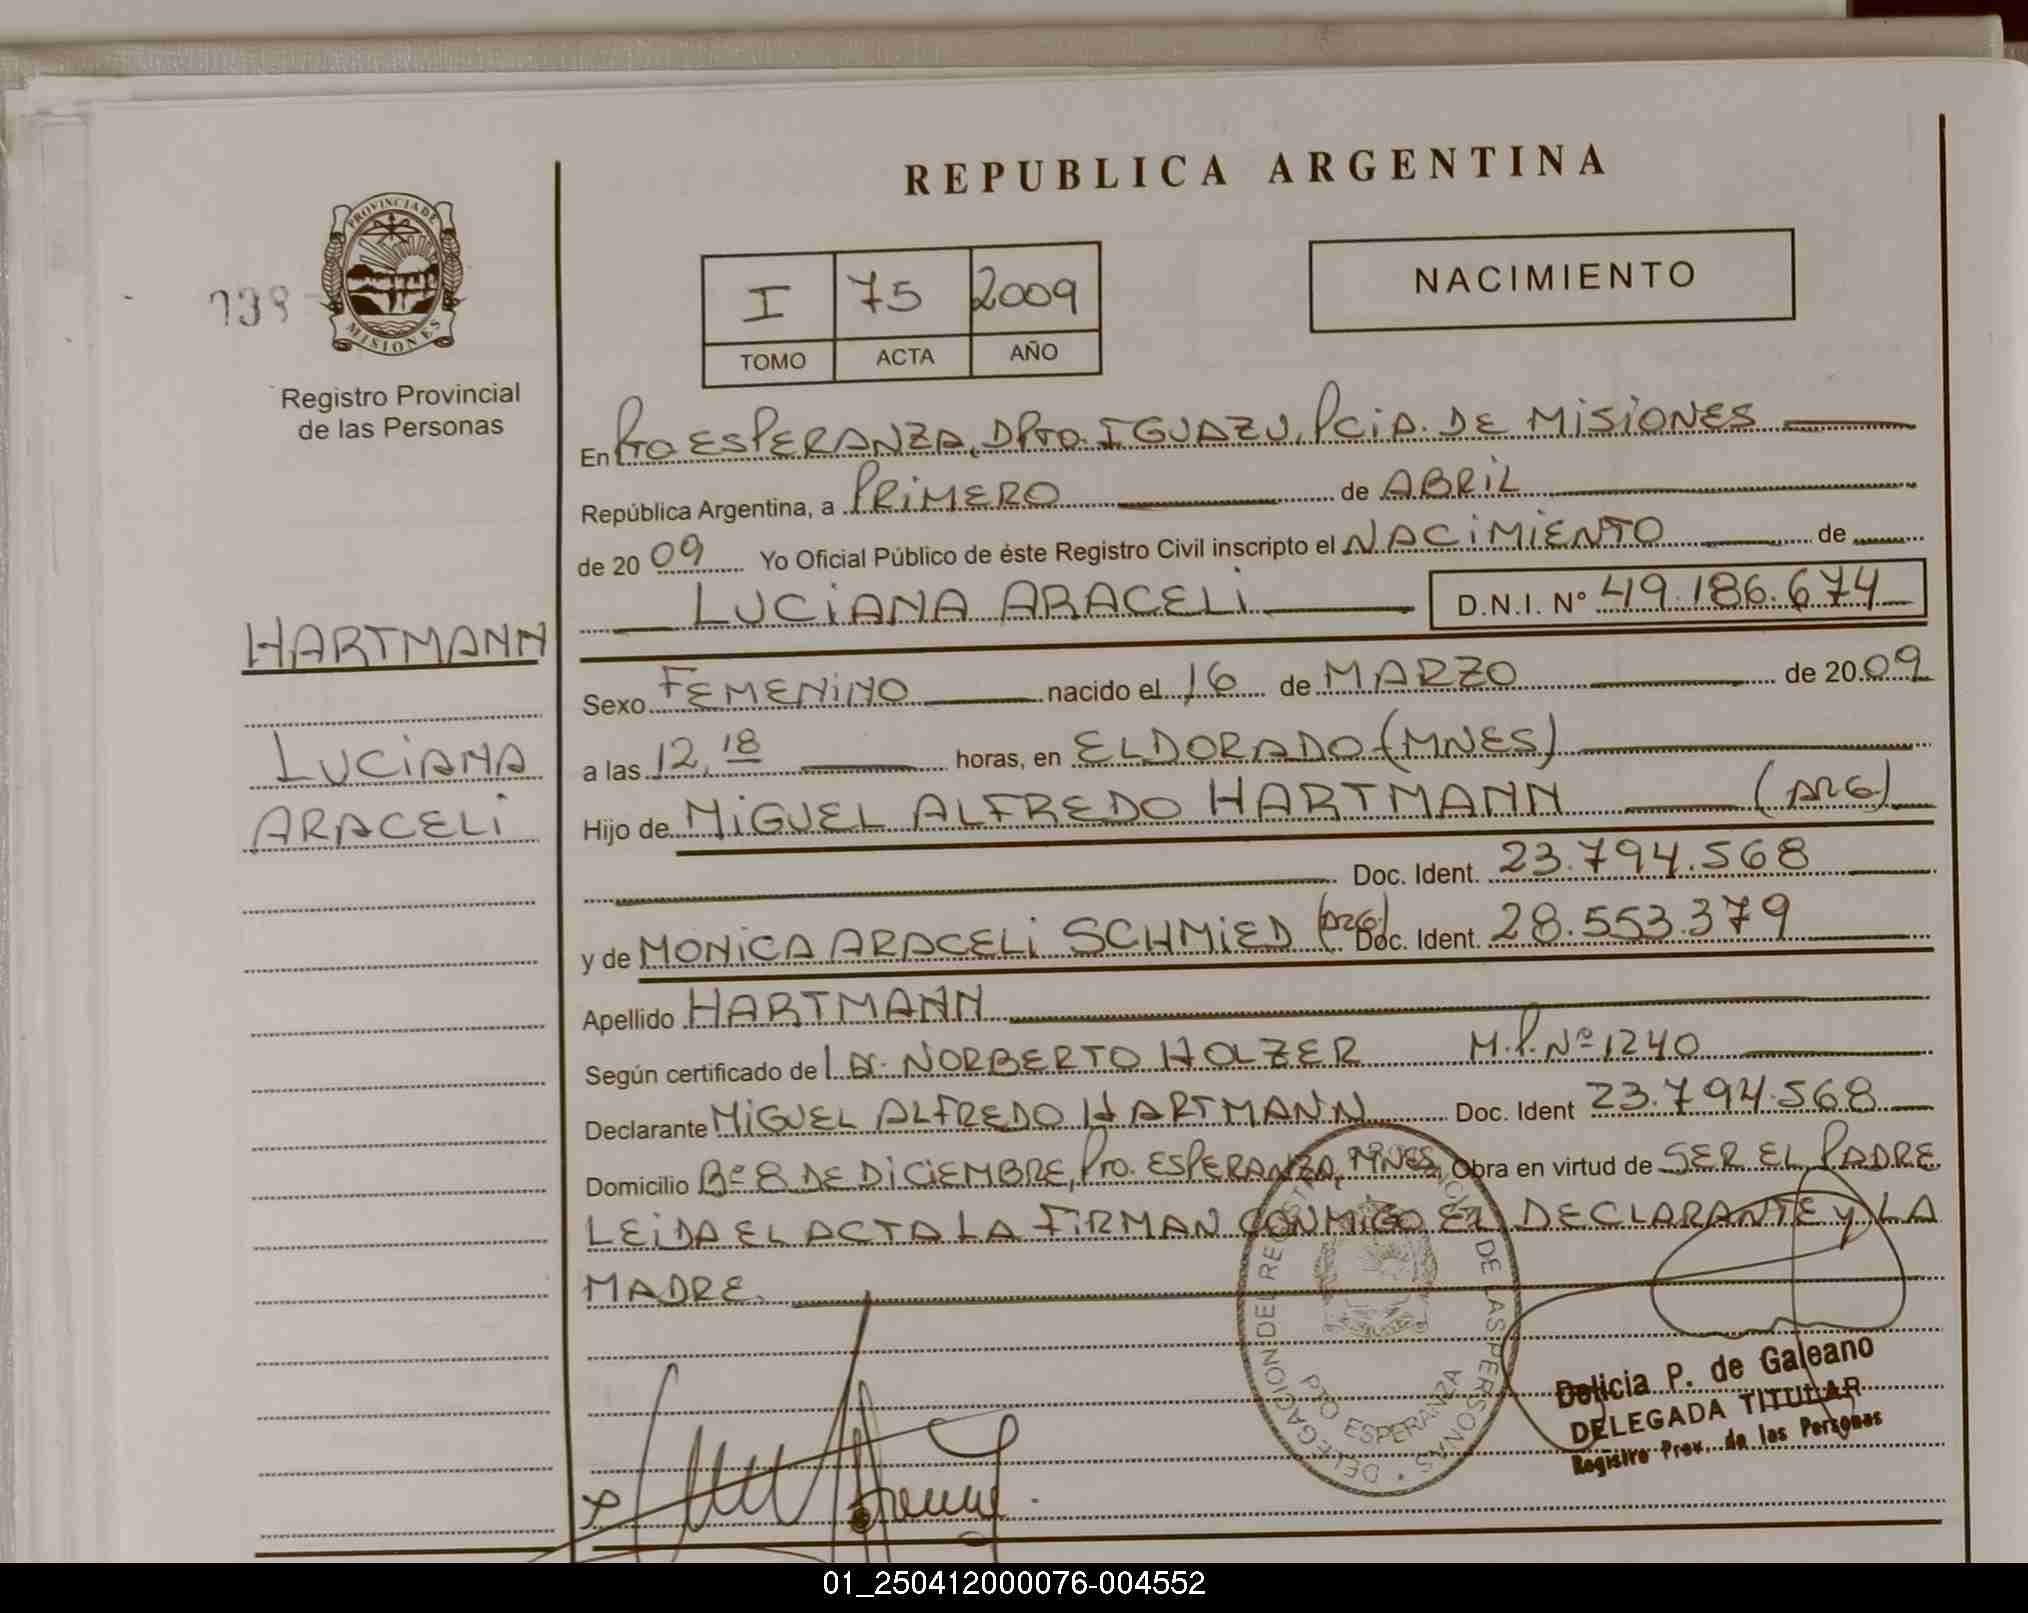 REPUBLICA ARGENTINA
PROVINCIA DE
MISIONES
Registro Provincial
de las Personas
NACIMIENTO
I 75 2009
TOMO ACTA AÑO
En Pto ESPERANZA, DPTO. IGUAZU, PCIA. DE MISIONES
República Argentina, a PRIMERO de ABRIL
de 2009 Yo Oficial Público de éste Registro Civil inscripto el NACIMIENTO de
LUCIANA ARACELI D.N.I. Nº 49.186.674
HARTMANN
LUCIANA
ARACELI
Sexo FEMENINO nacido el 16 de MARZO de 2009
a las 12,18 horas, en ELDORADO (MNES)
Hijo de MIGUEL ALFREDO HARTMANN (ARG)
Doc. Ident. 23.794.568
y de MONICA ARACELI SCHMIED (ARG) Doc. Ident. 28.553.379
Apellido HARTMANN
Según certificado de NORBERTO HOLZER M.P. Nº 1240
Declarante MIGUEL ALFREDO HARTMANN Doc. Ident 23.794.568
Domicilio Bº 8 DE DICIEMBRE, Pto. ESPERANZA, MNES, Obra en virtud de SER EL PADRE
LEIDA EL ACTA LA FIRMAN CONMIGO EL DECLARANTE y LA
MADRE.
DELEGACION DEL REGISTRO DE LAS PERSONAS
PTO ESPERANZA
Delicia P. de Galeano
DELEGADA TITULAR
Registro Prov. de las Personas
01_250412000076-004552